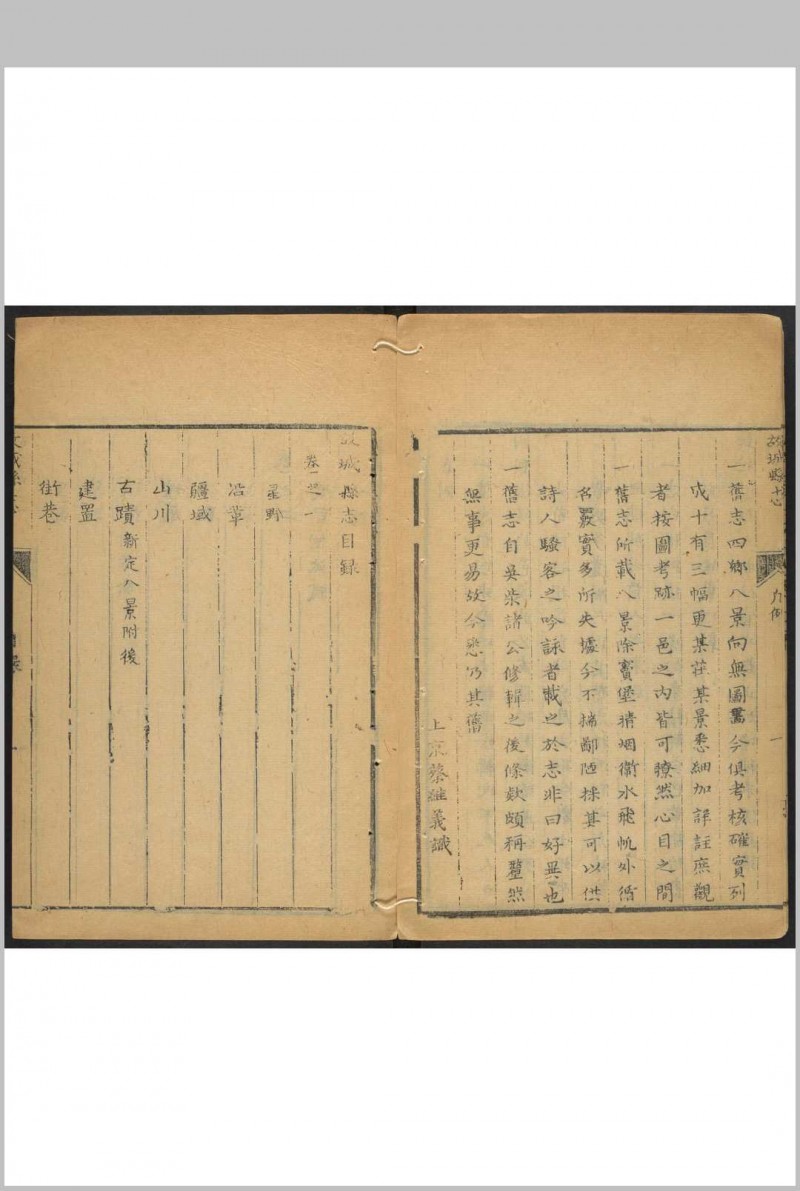 故城縣志
凡例
一
一舊志四鄉八景向無圖畧今俱考核確實列
成十有三幅更某莊某景悉細加詳註庶觀
者按圖考跡一邑之內皆可瞭然心目之間
一舊志所載八景除寶堡晴烟衞水飛帆外循
名覈實多所失墟今不揣鄙陋採其可以供
詩人騷客之吟詠者載之於志非曰好異也
一舊志自吳柴諸公修輯之後條欵頗稱釐然
無事更易故今悉仍其舊
上京蔡維義識
故城縣志目録
卷之一
星野
沿革
疆域
山川
古蹟新定八景附後
建置
街巷